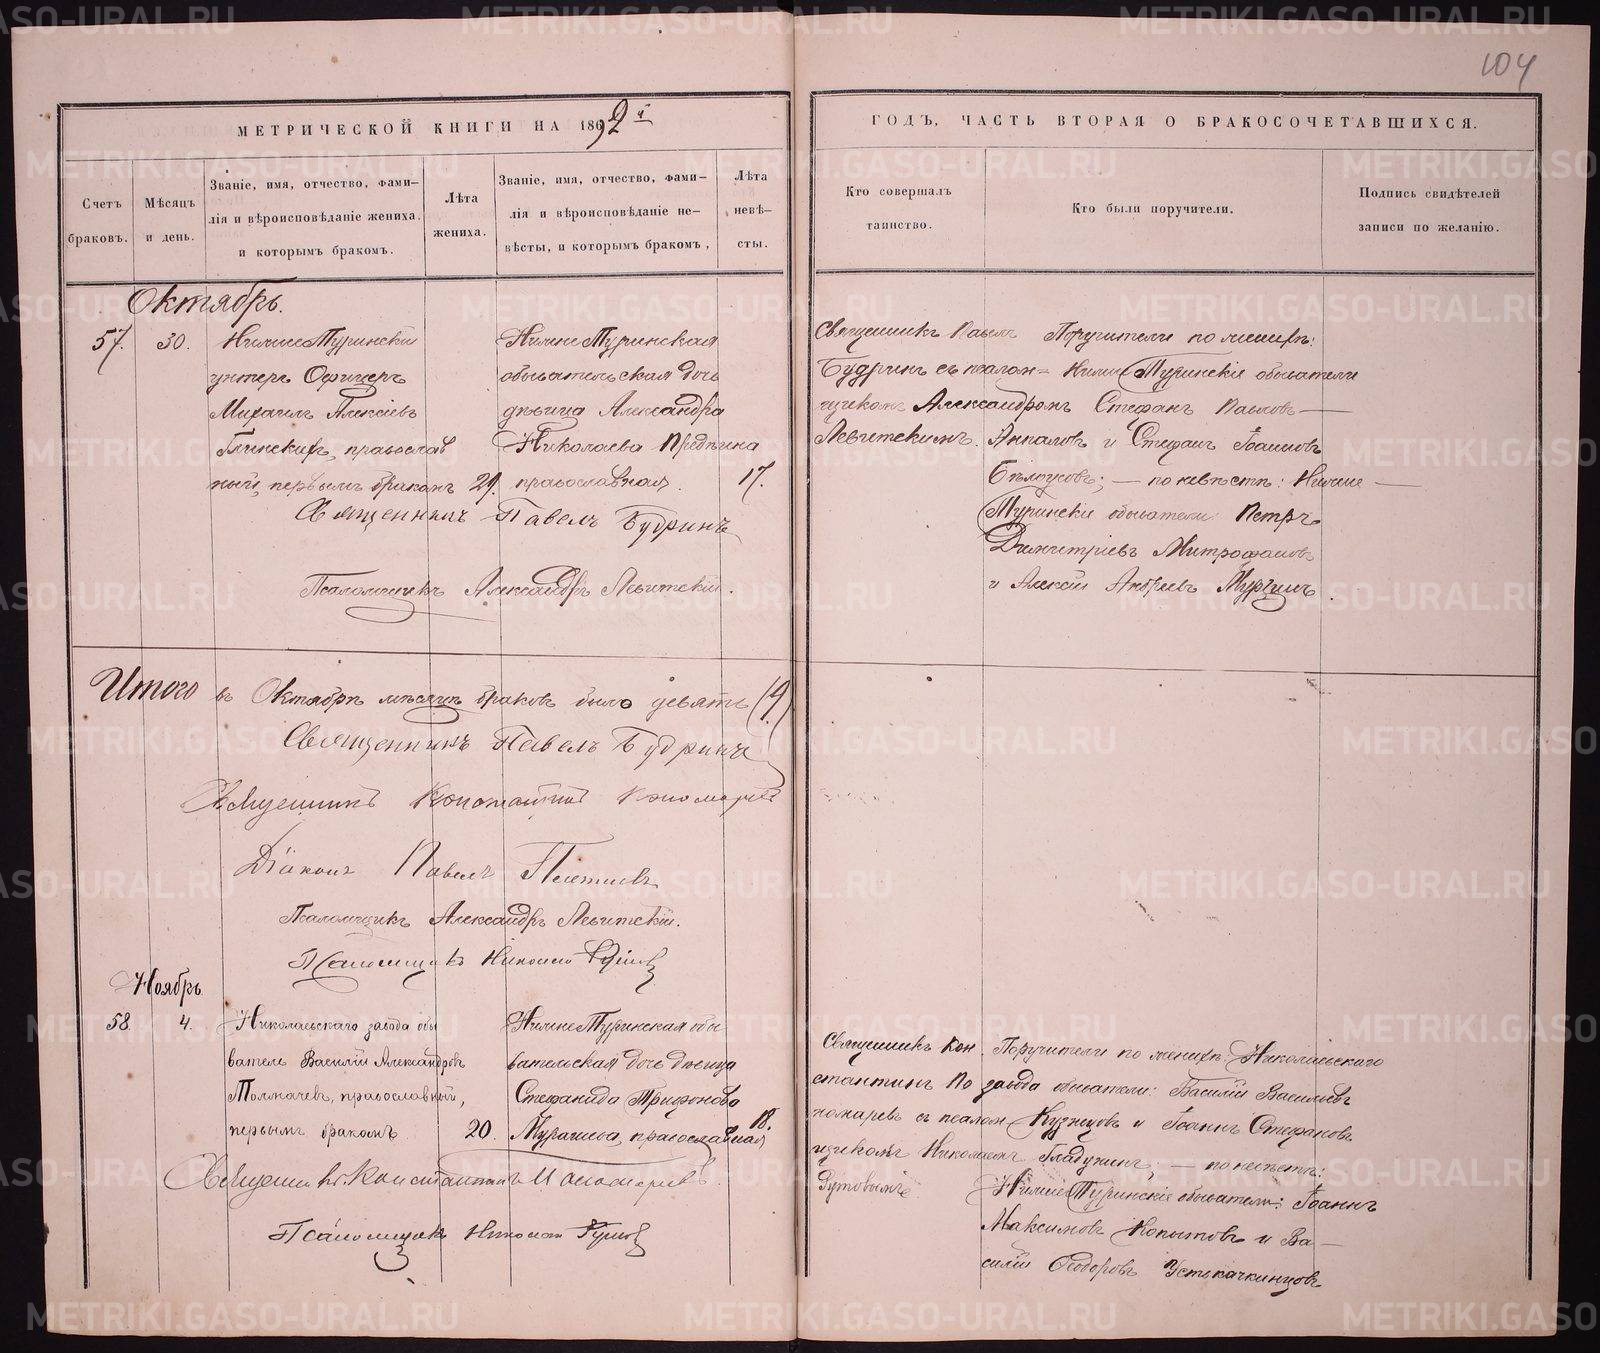 104
МЕТРИЧЕСКОЙ КНИГИ НА 1892й
ГОДЪ, ЧАСТЬ ВТОРАЯ О БРАКОСОЧЕТАВШИХСЯ.
Счетъ
браковъ.
Мѣсяцъ
и день.
Званіе, имя, отчество, фами-
лія и вѣроисповѣданіе жениха.
и которымъ бракомъ.
Лѣта
жениха.
Званіе, имя, отчество, фами-
лія и вѣроисповѣданіе не-
вѣсты, и которымъ бракомъ,
Лѣта
невѣ-
сты.
Кто совершалъ
таинство.
Кто были поручители.
Подпись свидѣтелей
записи по желанію.
Октябрь.
57.
30.
Нижне Туринскій
унтеръ Офицеръ
Михаилъ Алексіевъ
Глинскихъ, православ
ный, первымъ бракомъ
29.
Нижне Туринская
обывательская дочь
дѣвица Александра
Николаева Предѣина
православная.
17.
Священникъ Павелъ
Будринъ съ псалом-
щикомъ Александромъ
Левитскимъ.
Поручители по женихѣ:
Нижне Туринскіе обыватели
Стефанъ Павловъ
и Стефанъ Іоанновъ
Бѣлоусовъ; — по невѣстѣ: Нижне
Туринскіе обыватели Петръ
Димитріевъ Митрофановъ
и Алексій Андреевъ
Священникъ Павелъ Будринъ
Псаломщикъ Александръ Левитскій.
Итого въ Октябрѣ мѣсяцѣ браковъ было девять (9)
Священникъ Павелъ Будринъ
Священникъ Константинъ Пономаревъ
Діаконъ Павелъ
Псаломщикъ Александръ Левитскій.
Псаломщикъ Николай
Ноябрь
58.
4.
Николаевскаго завода обы
ватель Василій Александровъ
Толмачевъ, православный,
первымъ бракомъ
20.
Нижне Туринская обы
вательская дочь дѣвица
Стефанида Трифонова
Мурашева, православная
18.
Священникъ Кон
стантинъ По
номаревъ съ псалом
щикомъ Николаемъ
Поручители по женихѣ: Николаевскаго
завода обыватели: Василій Васильевъ
Кузнецовъ и Іоаннъ Стефановъ
— по невѣстѣ:
Нижне Туринскіе обыватели: Іоаннъ
Максимовъ Копытовъ и Ва-
силій Ѳеодоровъ Устькачкинцовъ
Священникъ Константинъ Пономаревъ.
Псаломщикъ Николай
METRIKI.GASO-URAL.RU